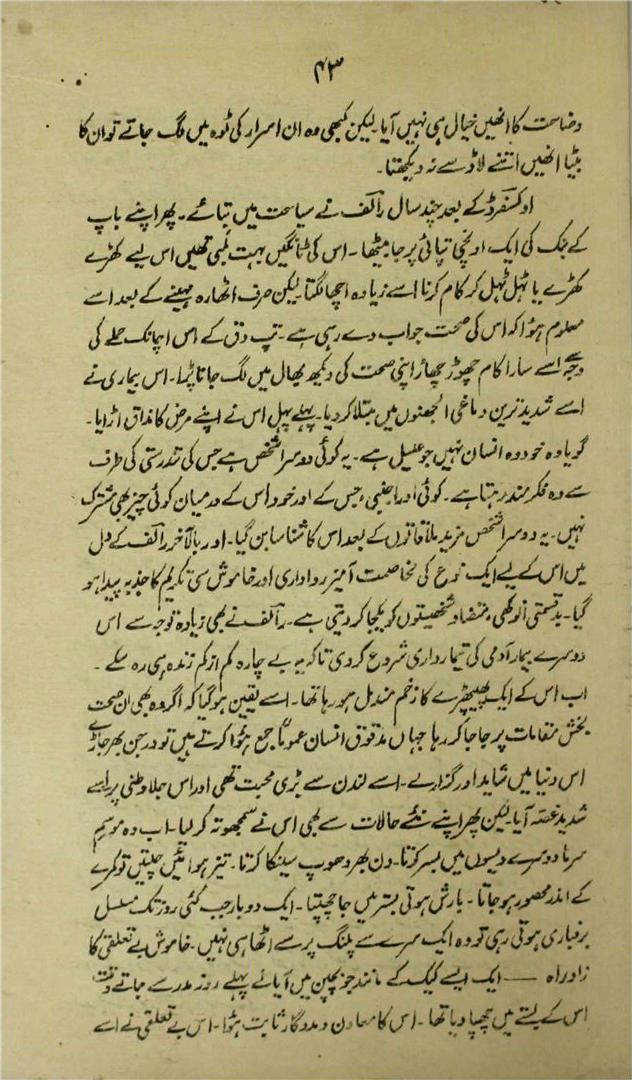 ۴۳
وضاحت کا انھیں خیال ہی نہیں آیا۔ لیکن کبھی وہ ان اسرار کی ٹوہ میں لگ جاتے تو ان کا
بیٹا انھیں اتنے لاڈ سے نہ دیکھتا۔
اوکسفرڈ کے بعد چند سال رآلف نے سیاحت میں بتائے۔ پھر اپنے باپ
کے بنک کی ایک اونچی تپائی پر جا بیٹھا۔ اس کی ٹانگیں بہت لمبی تھیں اس لیے کھڑے
کھڑے یا ٹہل ٹہل کر کام کرنا اسے زیادہ اچھا لگتا لیکن صرف اٹھارہ مہینے کے بعد اسے
معلوم ہوا کہ اس کی صحت جواب دے رہی ہے۔ تپ دق کے اس اچانک حملے کی
وجہ اسے سارا کام چھوڑ چھاڑ اپنی صحت کی دیکھ بھال میں لگ جانا پڑا۔ اس بیماری نے
اسے شدید ترین دماغی الجھنوں میں مبتلا کر دیا۔ پہلے پہل اس نے اپنے مرض کا مذاق اڑایا۔
گویا وہ خود وہ انسان نہیں جو علیل ہے۔ یہ کوئی دوسرا شخص ہے جس کی تندرستی کی طرف
سے وہ فکر مند رہتا ہے۔ کوئی اور اجنبی، جس کے اور خود اس کے درمیان کوئی چیز بھی مشترک
نہیں۔ یہ دوسرا شخص مزید ملاقاتوں کے بعد اس کا شناسا بن گیا۔ اور بالآخر رآلف کے دل
میں اس کے لیے ایک نوع کی مخاصمت آمیز رواداری اور خاموش سی تکریم کا جذبہ پیدا ہو
گیا۔ بدقسمتی انوکھی، متضاد شخصیتوں کو یکجا کر دیتی ہے۔ رآلف نے بھی زیادہ توجہ سے اس
دوسرے بیمار آدمی کی تیمارداری شروع کر دی تاکہ یہ بے چارہ کم از کم زندہ ہی رہ سکے۔
اب اس کے ایک پھیپھڑے کا زخم مندمل ہو رہا تھا۔ اسے یقین ہو گیا کہ اگر وہ بھی ان صحت
بخش مقامات پر جا جا کر رہا جہاں مدقوق انسان عموماً جمع ہوا کرتے ہیں تو درجن بھر جاڑے
اس دنیا میں شاید اور گزار لے۔ اسے لندن سے بڑی محبت تھی اور اس جلاوطنی پر اسے
شدید غصہ آیا۔ لیکن پھر اپنے نئے حالات سے بھی اس نے سمجھوتہ کر لیا۔ اب وہ موسم
سرما دوسرے دیسوں میں بسر کرتا۔ دن بھر دھوپ سینکا کرتا۔ تیز ہوائیں چلتیں تو کمرے
کے اندر محصور ہو جاتا۔ بارش ہوتی بستر میں جا چھپتا۔ ایک دو بار جب کئی روز تک مسلسل
برفباری ہوتی رہی تو وہ ایک سرے سے پلنگ پر سے اٹھا ہی نہیں۔ خاموش بے تعلقی کا
زاد راہ —— ایک ایسے کیک کے مانند جو بچپن میں آیا نے پہلے روز مدرسے جاتے وقت
اس کے بستے میں چھپا دیا تھا۔ اس کا معاون و مددگار ثابت ہوا۔ اس بے تعلقی نے اسے